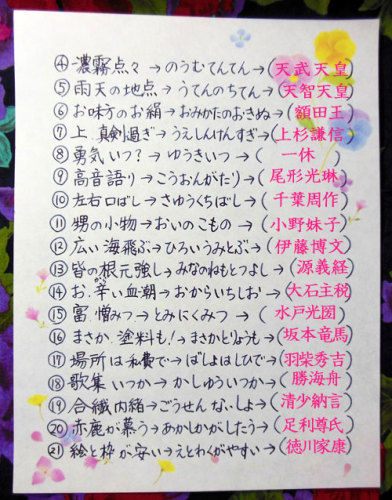 ④ 濃霧点々→のうむてんてん→(天武天皇)
⑤ 雨天の地点→うてんのちてん→(天智天皇)
⑥ お味方のお絹→おみかたのおきぬ→(額田王)
⑦ 上、真剣過ぎ→うえしんけんすぎ→(上杉謙信)
⑧ 勇気いつ?→ゆうきいつ→(一休)
⑨ 高音語り→こうおんがたり→(尾形光琳)
⑩ 左右口ばし→さゆうくちばし→(千葉周作)
⑪ 甥の小物→おいのこもの→(小野妹子)
⑫ 広い海飛ぶ→ひろいうみとぶ→(伊藤博文)
⑬ 皆の根元強し→みなのねもとつよし→(源義経)
⑭ お、辛い血潮→おからいちしお→(大石主税)
⑮ 富、憎みつ→とみにくみつ→(水戸光圀)
⑯ まさか、塗料も!→まさかとりょうも→(坂本竜馬)
⑰ 場所は私費で→ばしょはしひで→(羽柴秀吉)
⑱ 歌集いつか→かしゅういつか→(勝海舟)
⑲ 合繊内緒→ごうせんないしょ→(清少納言)
⑳ 赤鹿が慕う→あかしかがしたう→(足利尊氏)
㉑ 絵と枠が安い→えとわくがやすい→(徳川家康)